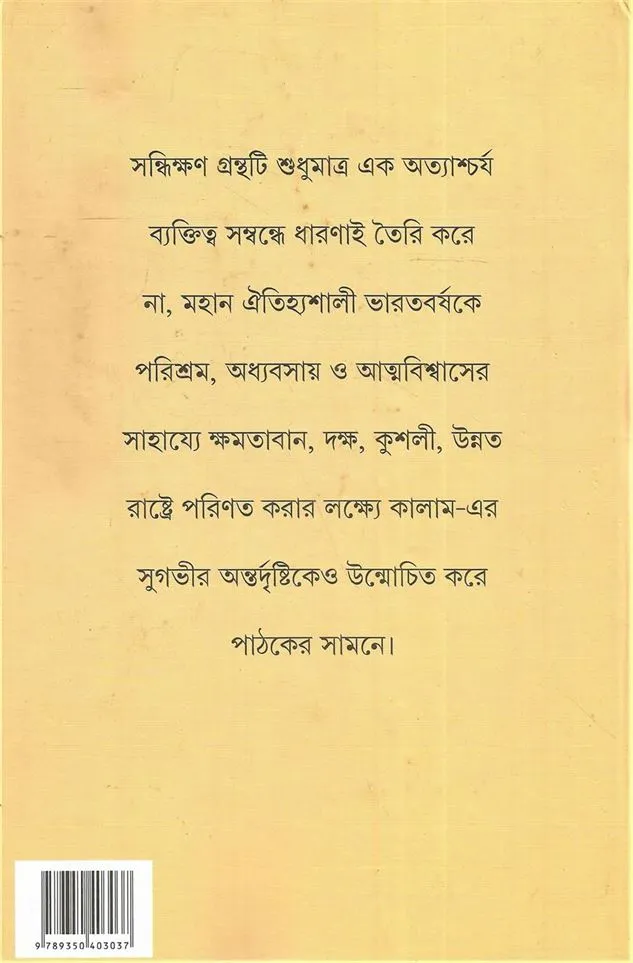 সন্ধিক্ষণ গ্রন্থটি শুধুমাত্র এক অত্যাশ্চর্য
ব্যক্তিত্ব সম্বন্ধে ধারণাই তৈরি করে
না, মহান ঐতিহ্যশালী ভারতবর্ষকে
পরিশ্রম, অধ্যবসায় ও আত্মবিশ্বাসের
সাহায্যে ক্ষমতাবান, দক্ষ, কুশলী, উন্নত
রাষ্ট্রে পরিণত করার লক্ষ্যে কালাম-এর
সুগভীর অন্তর্দৃষ্টিকেও উন্মোচিত করে
পাঠকের সামনে।
9 789350 403037